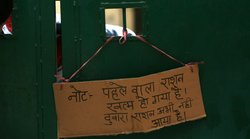 नोट- पहले वाला राशन
खत्म हो गया है।
दुबारा राशन अभी नहीं
आया है।